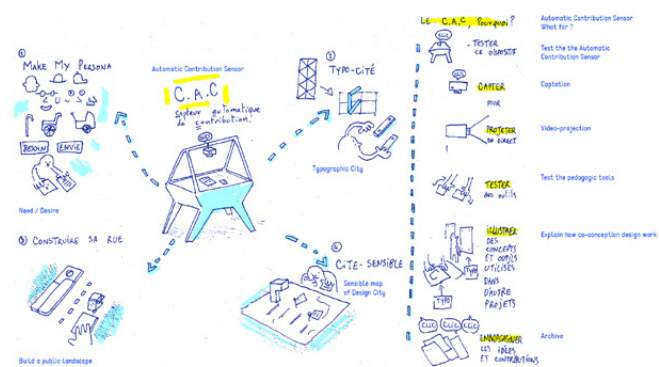 ① MAKE MY PERSONA
BESOIN
ENVIE
Need / Desire
Automatic Contribution Sensor
C.A.C
automatique
de contribution!
② TYPO-CITÉ
Typographic City
③ CONSTRUIRE SA RUE
Build a public Landscape
④ CITE-SENSIBLE
Sensible map
of Design City
LE C.A.C, Pourquoi?
CLIC
- TESTER
CE DISPOSITIF
CAPTER
POUR
PROJETER
EN DIRECT
TESTER
des outils
ILLUSTRER
DES
CONCEPTS
ET OUTILS
UTILISÉS
DANS
D'AUTRE
PROJETS
C
TYPO
TYPO
CLIC CLIC CLIC
EMMAGASINER
LES IDÉES
ET CONTRIBUTIONS
Automatic Contribution Sensor
What for ?
Test the the Automatic
Contribution Sensor
Captation
Video-projection
Test the pedagogic tools
Explain how co-conception design work
Archive